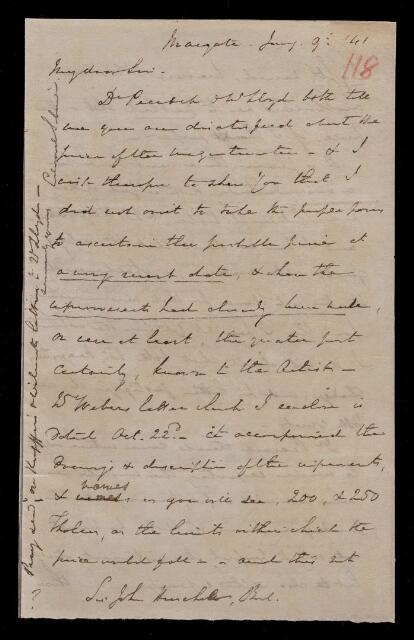 Margate. Jany. 9: 41
118
My dear Sir.
Dr Peacock & Dr Lloyd both tell
me you are dissatisfied about the
price of the magnetometer - & I
wish therefore to shew you that I
did not omit to take the proper pains
to ascertain their probable price at
a very recent date, & when the
improvements had already been made,
or were at least, the greater part
certainly, known to the Artist -
Dr Weber's letter which I enclose is
dated Oct. 22d. - it accompanied the
Drawings & description of the instruments,
& names as you will see, 200, & 250
Thalers, as the limits within which the
price would fall - and this at
Sir John Herschel, Bart.
Pray send on letter to Dr Lloyd -
Sincerely yours